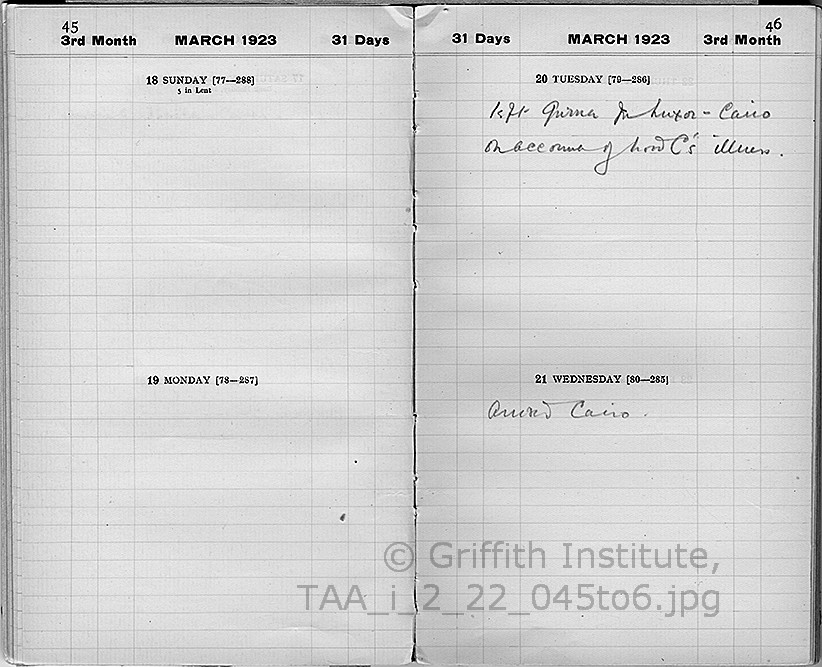 45
3rd Month MARCH 1923 31 Days
18 SUNDAY [77—288]
5 in Lent
19 MONDAY [78—287]
46
31 Days MARCH 1923 3rd Month
20 TUESDAY [79—286]
left Gurna for Luxor - Cairo
on account of Lord C's illness.
21 WEDNESDAY [80—285]
Arrived Cairo.
© Griffith Institute,
TAA_i_2_22_045to6.jpg